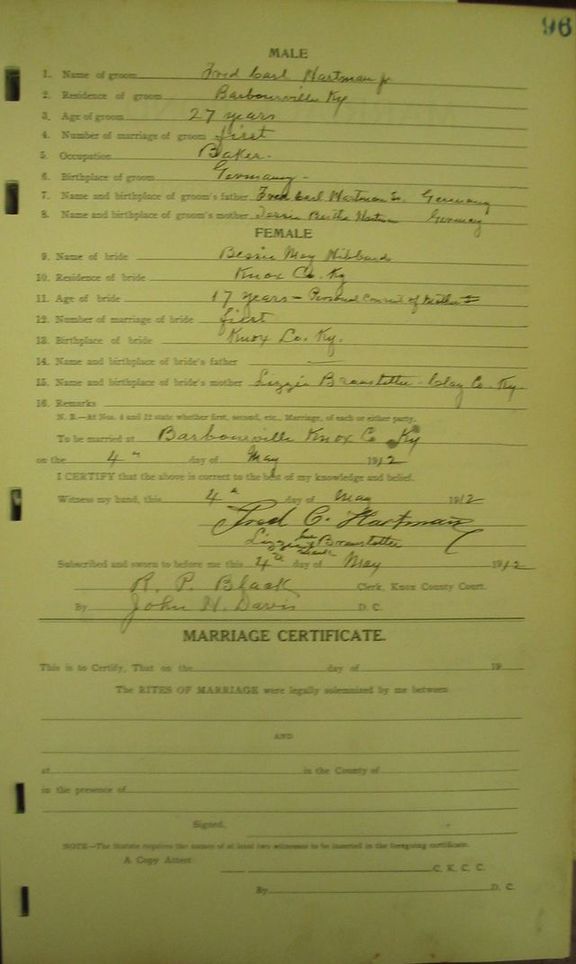 96
MALE
1. Name of groom Fred Carl Hartman Jr
2. Residence of groom Barbourville Ky
3. Age of groom 27 years
4. Number of marriage of groom first
5. Occupation Baker.
6. Birthplace of groom Germany.
7. Name and birthplace of groom's father Fred Carl Hartman Sr. Germany
8. Name and birthplace of groom's mother Bertha Hartman Germany
FEMALE
9. Name of bride Bessie May Hibbard
10. Residence of bride Knox Co. Ky
11. Age of bride 17 years - Personal Consent of Mother
12. Number of marriage of bride first
13. Birthplace of bride Knox Co. Ky.
14. Name and birthplace of bride's father
15. Name and birthplace of bride's mother Lizzie Branstetter - Clay Co. Ky.
16. Remarks
N. B.—At Nos. 4 and 12 state whether first, second, etc., Marriage, of each or either party.
To be married at Barbourville Knox Co Ky
on the 4" day of May 1912
I CERTIFY that the above is correct to the best of my knowledge and belief.
Witness my hand, this 4" day of May 1912
Fred C. Hartman
her
Lizzie Branstetter
mark
Subscribed and sworn to before me this 4th day of May 1912
R. P. Black Clerk, Knox County Court.
By John H. Davis D. C.
MARRIAGE CERTIFICATE.
This is to Certify, That on the day of 19
The RITES OF MARRIAGE were legally solemnized by me between
AND
at in the County of
in the presence of
Signed,
NOTE—The Statute requires the names of at least two witnesses to be inserted in the foregoing certificate.
A Copy Attest: C. K. C. C.
By D. C.